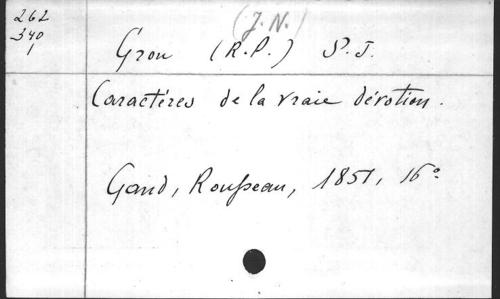 262
340
1
(J. N.)
Grou (R.P.) S. J.
Caractères de la vraie dévotion.
Gand, Rousseau, 1851, 16°